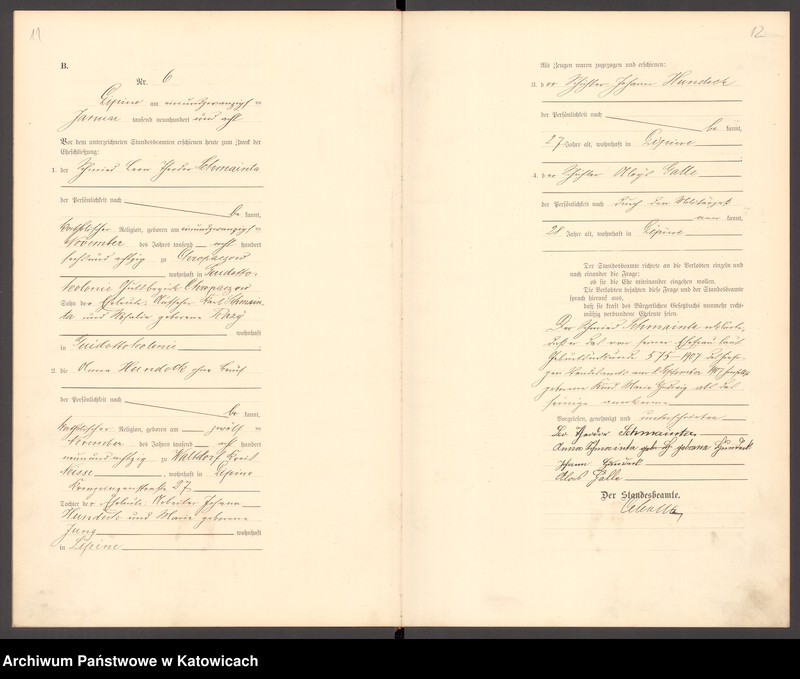 11
B.
Nr. 6
Lipine am einundzwanzigsten
Januar tausend neunhundert und acht
Vor dem unterzeichneten Standesbeamten erschienen heute zum Zweck der
Eheschließung:
1. der Schmied Theodor Schmainta
der Persönlichkeit nach
be kannt,
katholischer Religion, geboren am einundzwanzigsten
November des Jahres tausend acht hundert
sechsundachtzig zu Chropaczow
, wohnhaft in Guidotto-
kolonie Gutsbezirk Chropaczow
Sohn der Eheleute Karl Schmain-
ta und Rosalie geborene
wohnhaft
in Guidottokolonie
2. die Anna Hundeck ohne Beruf
der Persönlichkeit nach
be kannt,
katholischer Religion, geboren am zwölften
November des Jahres tausend acht hundert
neunundachtzig zu Walldorf Kreis
Neisse, wohnhaft in Lipine
27
Tochter der Eheleute Arbeiter Johann
Hundeck und Marie geborene
Jung wohnhaft
in Lipine
12
Als Zeugen waren zugezogen und erschienen:
3. der Johann Hundeck
der Persönlichkeit nach
be kannt,
27 Jahre alt, wohnhaft in Lipine
4. der Galle
der Persönlichkeit nach durch den Militärpaß
aner kannt,
28 Jahre alt, wohnhaft in Lipine
Der Standesbeamte richtete an die Verlobten einzeln und
nach einander die Frage:
ob sie die Ehe miteinander eingehen wollen.
Die Verlobten bejahten diese Frage und der Standesbeamte
sprach hierauf aus,
daß sie kraft des Bürgerlichen Gesetzbuchs nunmehr recht-
mäßig verbundene Eheleute seien.
Der Schmied Schmainta erklärte,
daß er das von seiner Ehefrau laut
Geburtsurkunde 575-1907 des hiesi-
gen Standesamts am September 1907
geborene Kind Marie Hedwig als das
seinige anerkenne
Vorgelesen, genehmigt und unterschrieben
Leo Theodor Schmainta
Anna Schmainta geborene Hundeck
Johann Hundeck
Galle
Der Standesbeamte.
Archiwum Państwowe w Katowicach